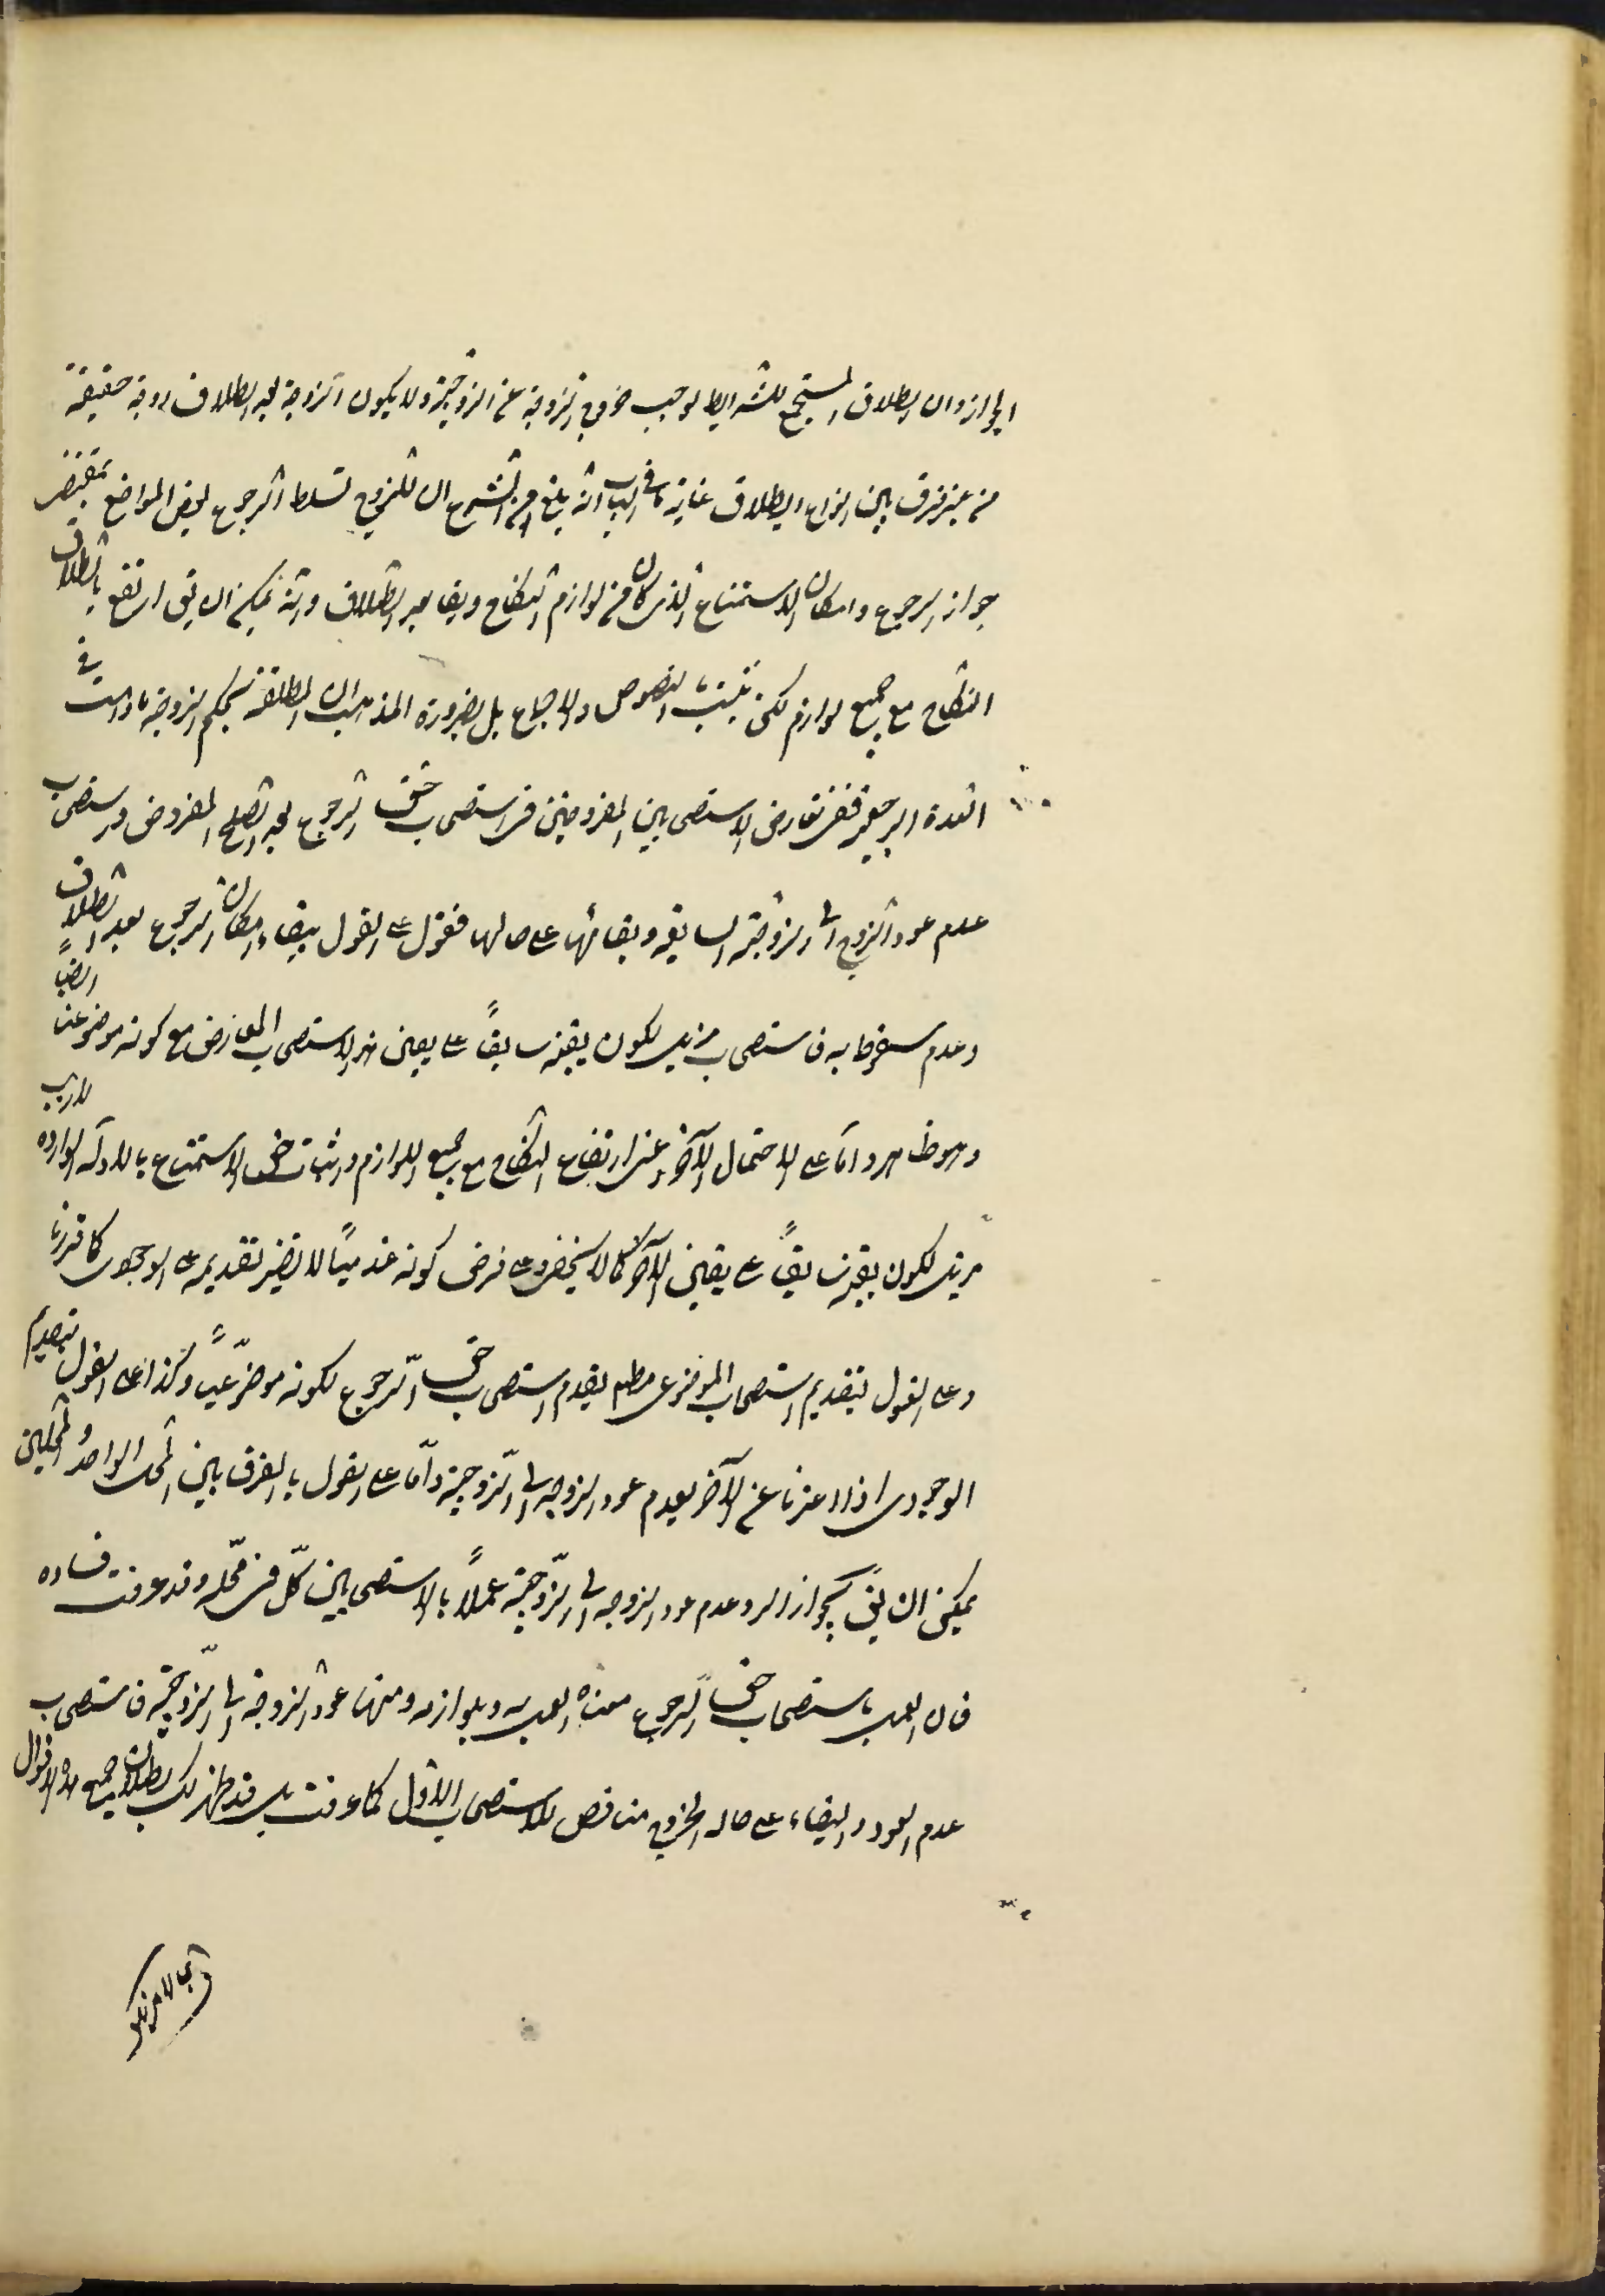 الجواز وان الطلاق المستجمع للشرايط لوجب خروج الزوجة عن الزوجية ولا يكون الزوجة بعد الطلاق زوجة حقيقة
من غير فرق بين انواع الطلاق غاية ما فى الباب انه بلغ من الشرع ان للزوج تسلط الرجوع لبعض المواضع بمقتضى
جواز الرجوع وامكان الاستمتاع الذى كان من لوازم النكاح وبقا بعد الطلاق وانه يمكن ان يق ارتفع بالطلاق
النكاح مع جميع لوازم لكن ثبت بالنصوص والاجماع بل بضرورة المذهب ان المطلقة بحكم الزوجة ما دامت فى
العدة الرجعية ففى تعارض الاستصحابين المفروضين من استصحاب حق الرجوع بعد الصلح المفروض واستصحاب
عدم عود الزوج الى الزوجية السابقة وبقائها على حالها فنقول على القول ببقاء امكان الرجوع بعد الطلاق
وعدم سقوطه به فاستصحاب مزيل لكون يقينه سابقاً على يقين هذا الاستصحاب المعارض مع كونه موضوعيا ايضاً
وهو ظاهر واما على الاحتمال الآخر اعنى ارتفاع النكاح مع جميع اللوازم واثبات حق الاستمتاع بالادلة الواردة لاريب
مزيل لكون يقينه سابقاً على يقين الآخر كما لا يخفى وعلى فرض كونه عدمياً لا يضر تقديمه على الوجودى كما قررنا
وعلى القول بتقديم استصحاب الموضوعى مطلم يقدم استصحاب حق الرجوع لكونه موضوعياً وكذا على القول بتقديم
الوجودى اذا اعرنا عن الآخر بعدم عود الزوجه الى الزوجية واما على القول بالفرق بين المحل الواحد والمحلين
يمكن ان يق بجواز الرد وعدم عود الزوجه الى الزوجية عملاً بالاستصحابين كل فى محله وقد عرفت فساده
فان العمل باستصحاب حق الرجوع معناه العمل به وبلوازمه ومنها عود الزوجة الى الزوجية فاستصحاب
عدم العود والبقاء على حالة الخروج مناقض للاستصحاب الاول كما عرفت بل قد ظهر لك بطلان جميع الاقوال